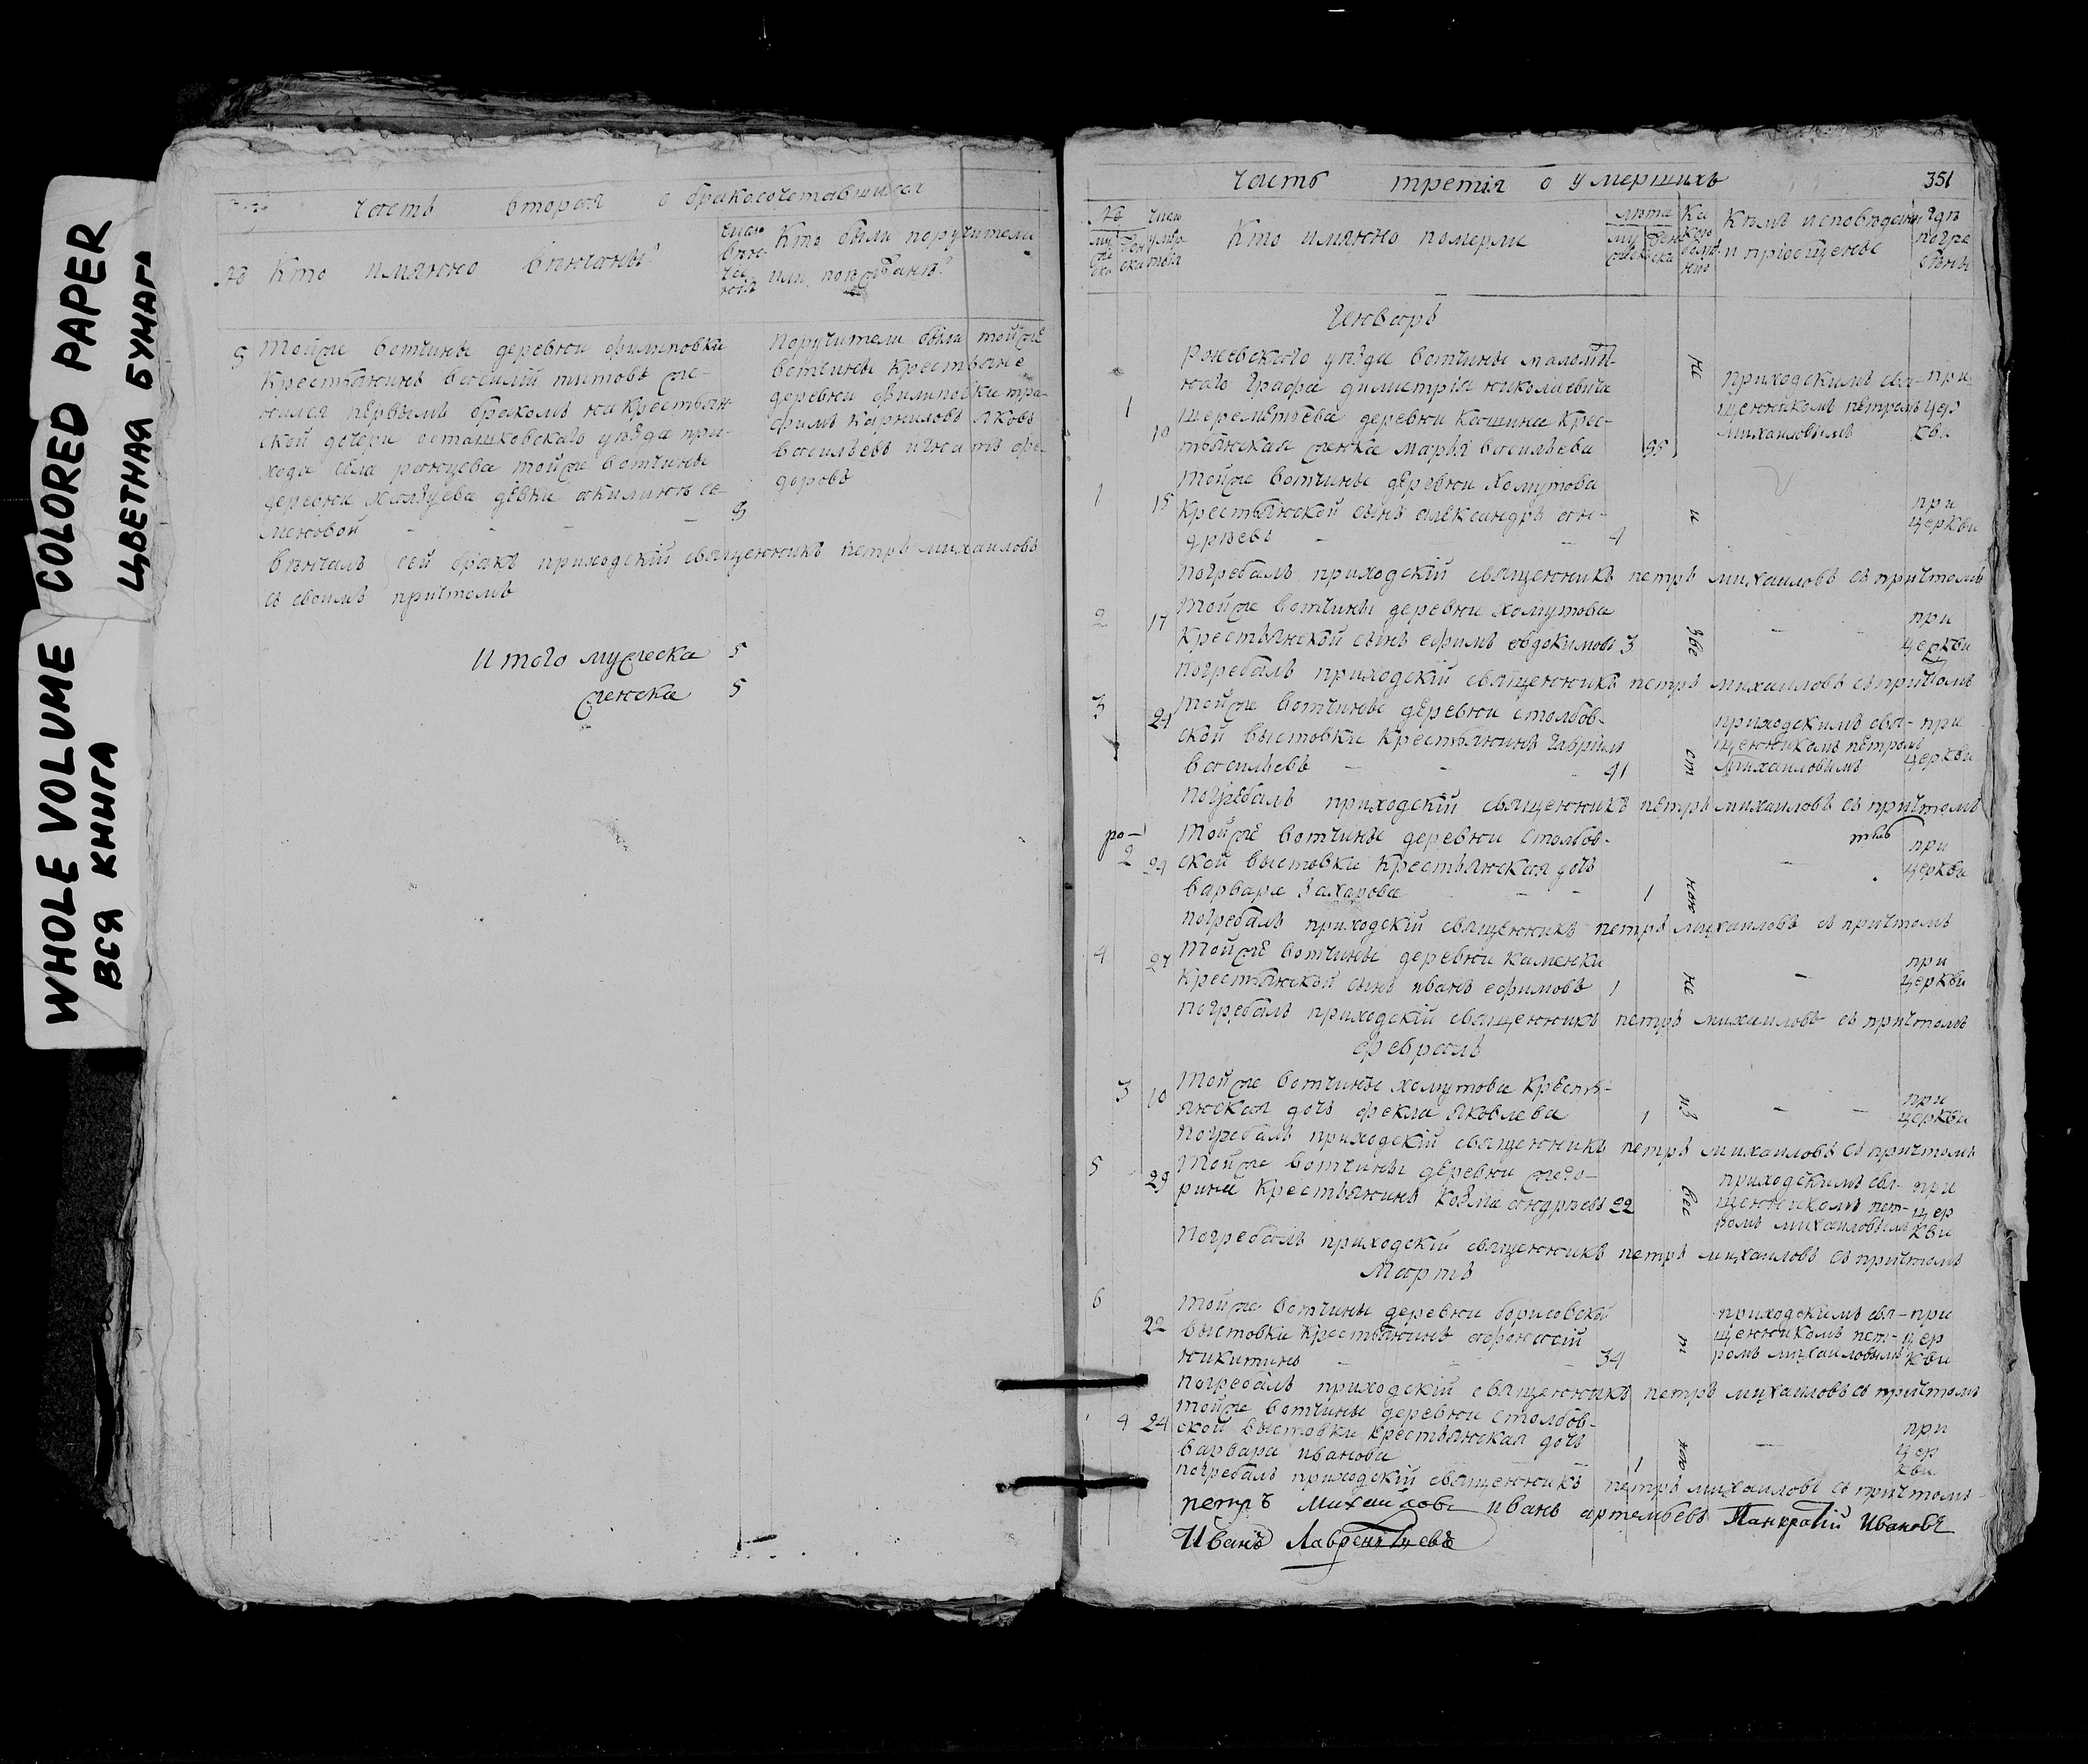 WHOLE VOLUME COLORED PAPER
ВСЯ КНИГА ЦВЕТНАЯ БУМАГА
часть вторая о бракосочетавшихся
№ Кто имянно венчаны?
Кто были поручители
5 тойже вотчины деревни филиповки
крестьянинъ василий титовъ же-
нился первымъ бракомъ на крестьян-
ской дочери осташковскаго уѣзда при-
хода села ранцева тойже вотчины
деревни девки акилины се-
меновой
вѣнчалъ сей бракъ приходскій священникъ петръ михаиловъ
съ своимъ причтомъ
поручители были тойже
вотчины крестьяне
деревни филиповки тро-
фимъ карниловъ яковъ
васильевъ игнатъ фе-
доровъ
Итого мужеска 5
женска 5
часть третія о умершихъ
351
Кто имянно померли
лѣта
Кѣмъ исповѣданы
и пріобщены
Гдѣ
погре
бены
Генварь
1 10 Ржевскаго уѣзда вотчины малолѣт-
наго Графа димитрія николаевича
шереметева деревни Кашина крес-
тьянская женка марья васильева
приходскимъ свя-
щенникомъ петромъ
михаиловымъ
при
цер
кви
1 15 тойже вотчины деревни Хомутова
крестьянской сынъ александръ ан-
дреевъ 4
при
церкви
погребалъ приходскій священникъ петръ михаиловъ съ причтомъ
2 17 тойже вотчины деревни хомутова
крестьянской сынъ ефимъ евдокимовъ 3
при
церкви
погребалъ приходскій священникъ петръ михаиловъ съ причтомъ
3 21 тойже вотчины деревни столбов-
ской выставки крестьянинъ Гавріилъ
васильевъ 41
приходскимъ свя-
щенникомъ петромъ
михаиловымъ
при
церкви
погребалъ приходскій священникъ петръ михаиловъ съ причтомъ
2 24 тойже вотчины деревни столбов-
ской выставки крестьянская дочь
варвара Захарова 1
при
церкви
погребалъ приходскій священникъ петръ михаиловъ съ причтомъ
4 27 тойже вотчины деревни каменки
крестьянской сынъ иванъ ефимовъ 1
при
церкви
погребалъ приходскій священникъ петръ михаиловъ съ причтомъ
февраль
3 10 тойже вотчины хомутова кресть-
янская дочь фекла яковлева 1
при
церкви
погребалъ приходскій священникъ петръ михаиловъ съ причтомъ
5 29 тойже вотчины деревни жего-
рина крестьянинъ козма андреевъ 22
приходскимъ свя-
щенникомъ пет-
ромъ михаиловымъ
при
цер
кви
погребалъ приходскій священникъ петръ михаиловъ съ причтомъ
Мартъ
6 22 тойже вотчины деревни борисовской
выставки крестьянинъ афонасій
никитинъ 34
приходскимъ свя-
щенникомъ пет-
ромъ михаиловымъ
при
цер
кви
погребалъ приходскій священникъ петръ михаиловъ съ причтомъ
4 24 тойже вотчины деревни столбов-
ской выставки крестьянская дочь
варвара иванова 1
при
цер
кви
погребалъ приходскій священникъ петръ михаиловъ съ причтомъ
петръ Михайловъ иванъ артемьевъ Панкратій Ивановъ
Иванъ Лаврентьевъ